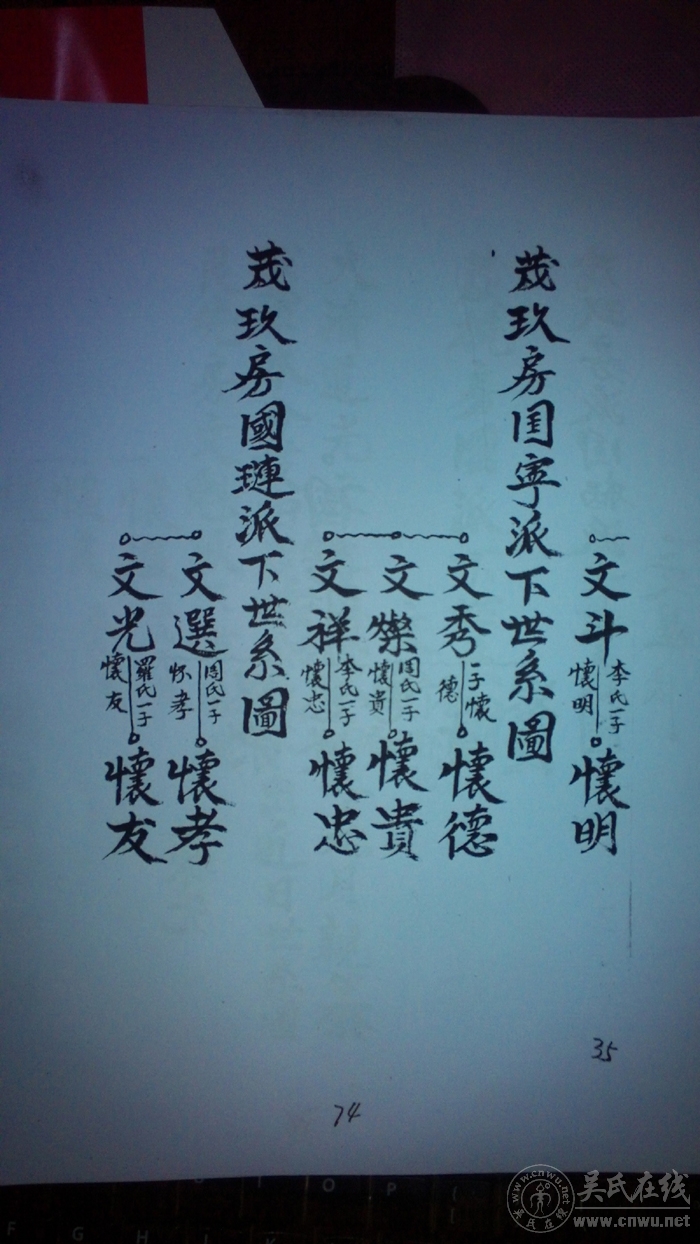 文斗
李氏一子
懷明
懷明
茂玖房国寧派下世系圖
文秀
一子懷
德
懷德
文燦
周氏一子
懷貴
懷貴
文祥
李氏一子
懷忠
懷忠
茂玖房國璉派下世系圖
文選
周氏一子
怀孝
懷孝
文光
羅氏一子
懷友
懷友
35
74
O P
F G H J
吴氏在线
www.cnwu.net